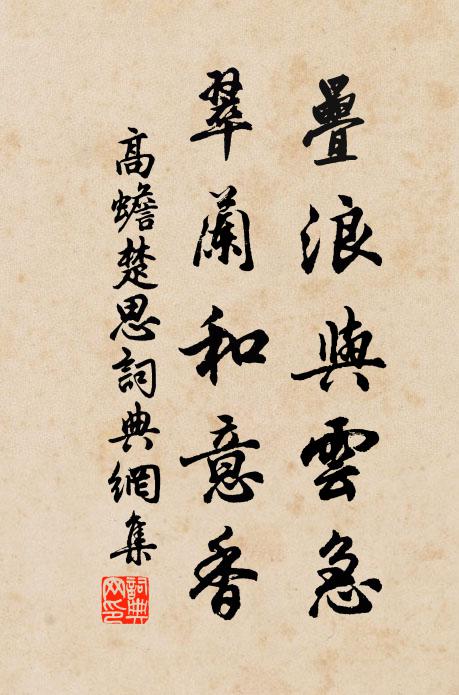 疊浪與雲急
翠蘭和意香
高蟾楚思詞典網集
詞典網印